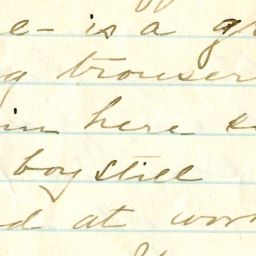 e - is a g
g trouser
in here s
boy still
d at wor